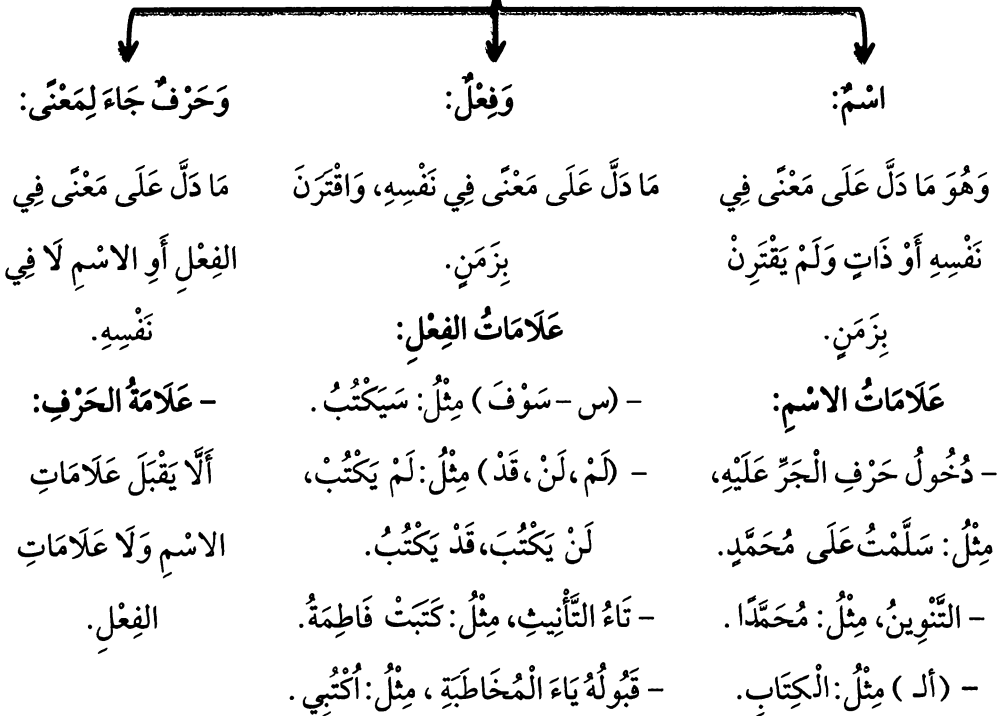 اسْمٌ:
وَهُوَ مَا دَلَّ عَلَى مَعْنًى فِي
نَفْسِهِ أَوْ ذَاتٍ وَلَمْ يَقْتَرِنْ
بِزَمَنٍ.
عَلَامَاتُ الاسْمِ:
– دُخُولُ حَرْفِ الْجَرِّ عَلَيْهِ،
مِثْلُ: سَلَّمْتُ عَلَى مُحَمَّدٍ.
– التَّنْوِينُ، مِثْلُ: مُحَمَّدًا.
– (ألـ) مِثْلُ: الْكِتَابِ.
وَفِعْلٌ:
مَا دَلَّ عَلَى مَعْنًى فِي نَفْسِهِ، وَاقْتَرَنَ
بِزَمَنٍ.
عَلَامَاتُ الفِعْلِ:
– (س – سَوْفَ) مِثْلُ: سَيَكْتُبُ.
– (لَمْ، لَنْ، قَدْ) مِثْلُ: لَمْ يَكْتُبْ،
لَنْ يَكْتُبَ، قَدْ يَكْتُبُ.
– تَاءُ التَّأْنِيثِ، مِثْلُ: كَتَبَتْ فَاطِمَةُ.
– قَبُولُهُ يَاءَ الْمُخَاطَبَةِ، مِثْلُ: اُكْتُبِي.
وَحَرْفٌ جَاءَ لِمَعْنًى:
مَا دَلَّ عَلَى مَعْنًى فِي
الفِعْلِ أَوِ الاسْمِ لَا فِي
نَفْسِهِ.
– عَلَامَةُ الحَرْفِ:
أَلَّا يَقْبَلَ عَلَامَاتِ
الاسْمِ وَلَا عَلَامَاتِ
الفِعْلِ.